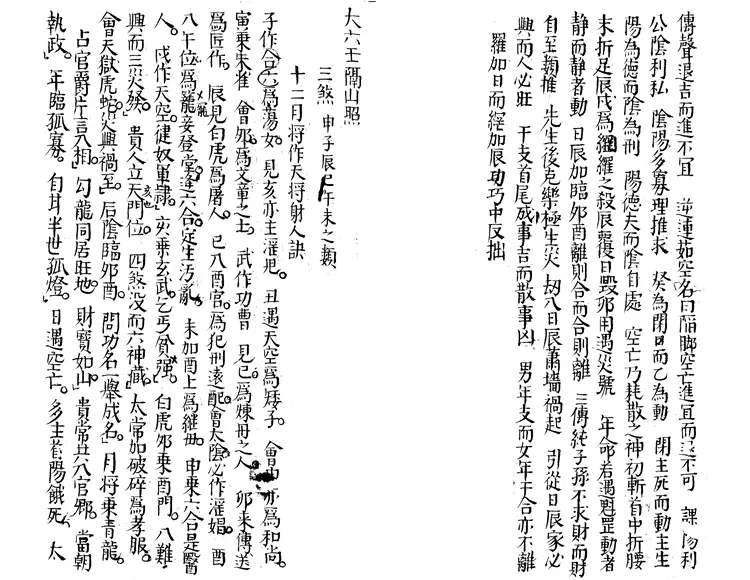 傳聲退吉而進不宜　逆連茹空名曰踏脚空亡進宜而退不可　課陽利
公陰利私　陰陽多寡理推求　癸為閉口而乙為動　閉主死而動主生
陽為德而陰為刑　陽德夫而陰自處　空亡乃耗散之神初斬首中折腰
末折足辰戌為網羅之殺辰覆日毀卯用遇災號　年命若遇魁罡動者
静而静者動　日辰加臨卯酉離則合而合則離　三傳純子孫不求財而財
自至類推　先生後克樂極生災　刼入日辰蕭墻禍起　引從日辰家必
興而人必旺　干支首尾成事吉而散事凶　男年支而女年干合亦不離
羅加日而網加辰功巧中反拙
大六壬隔山照
三煞　申子辰巳午未之類
十二月将作天将射人訣
子作合六為蕩女。見亥亦主淫児。丑遇天空為矮子。會亦為和尚。
寅乗朱雀　會卯。為文章之士。武作功曹　見巳。為煉丹之人　卯乗傳送
為匠作。辰見白虎為屠人。巳入酉宫。為犯刑遠配會太陰必作淫娼。酉
八午位。為寵妾登堂。逢六合。定生汚亂。未加酉上為継母。申乗六合是醫
人。戌作天空。健奴軍隷。亥乗玄武。乞丐貧强。白虎卯乗酉門。八難
興而三災發。貴人立天門位。四煞没而六神藏。太常如破碎為孝服。
會天獄虎蛇災興禍至。后陰臨卯酉。問功名一舉成名。月将乗青龍。
占官爵片言入相。勾龍同居旺地　財寳如山。貴常共入官鄉。當朝
執政。年臨孤寡。自甘半世孤燈。日遇空亡。多主首陽餓死。太